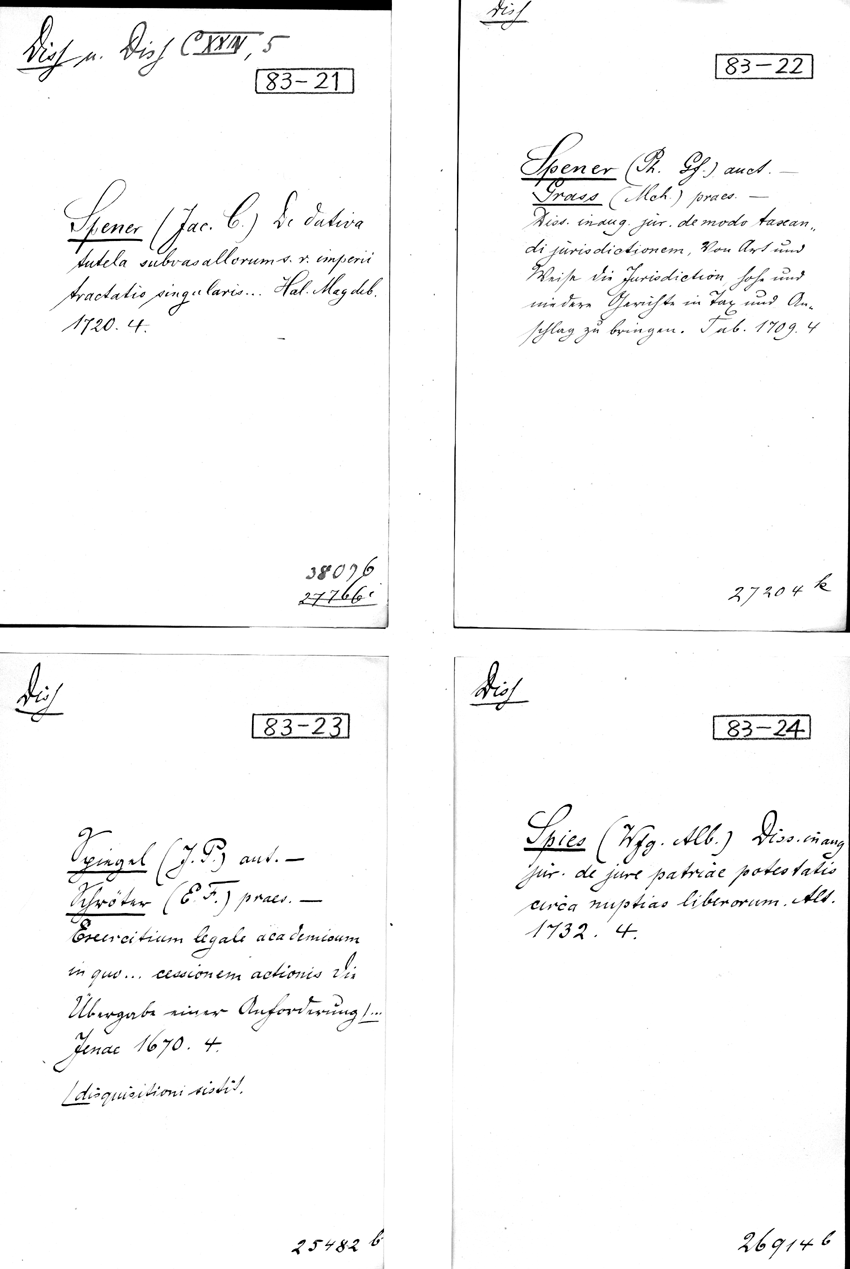 Diss u. Diss CXXIV, 5
83-21
Spener (Jac. C.) De dativa
tutela subvasallorum s. r. imperii
tractatio singularis... Hal. Magdeb.
1720. 4.
38096
27766 i
Diss
83-22
Spener (Ph. Gf.) auct. —
Grass (Mch.) praes. —
Diss. inaug. jur. de modo taxan-
di jurisdictionem, Von Art und
Weise die Jurisdiction, hohe und
niedere Gerichte in Tax und An-
schlag zu bringen. Tub. 1709. 4
27204 k
Diss
83-23
Spiegel (J. P.) aut. —
Schröter (E. F.) praes. —
Exercitium legale academicum
in quo... cessionem actionis die
Übergabe einer Anforderung /...
Jenae 1670. 4.
/disquisitioni sistit.
25482 b
Diss
83-24
Spies (Wfg. Alb.) Diss. inaug
jur. de jure patriae potestatis
circa nuptias liberorum. Alt.
1732. 4.
26914 b